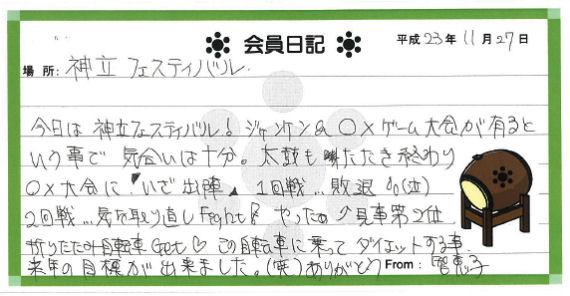 会員日記
平成23年11月27日
場所: 神立フェスティバル.
今日は神立フェスティバル! ジャンケン&○×ゲーム大会が有ると
いう事で 気合いは十分。太鼓もたたき終わり
○×大会に"いざ出陣" 1回戦...敗退(泣)
2回戦...気を取り直しFight! やったぁ 見事第2位
折りたたみ自転車Get♡ この自転車に乗ってダイエットする事.
来年の目標が出来ました。(笑)ありがとう From: 智恵子